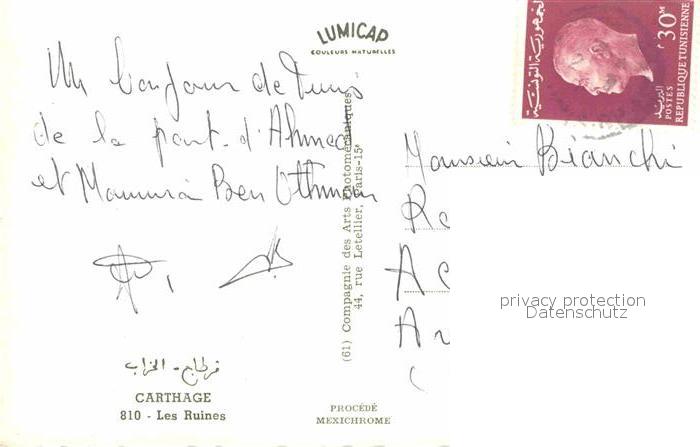 LUMICAP
COULEURS NATURELLES
Un bonjour de Tunis
de la part d'Ahmed
et Mounira Ben Othman
قرطاج - الخراب
CARTHAGE
810 - Les Ruines
(61) Compagnie des Arts Photomécaniques
44, rue Letellier, Paris-15e
PROCÉDÉ
MEXICHROME
الجمهورية التونسية
30M
البريد
POSTES
REPUBLIQUE TUNISIENNE
Monsieur Bianchi
privacy protection
Datenschutz